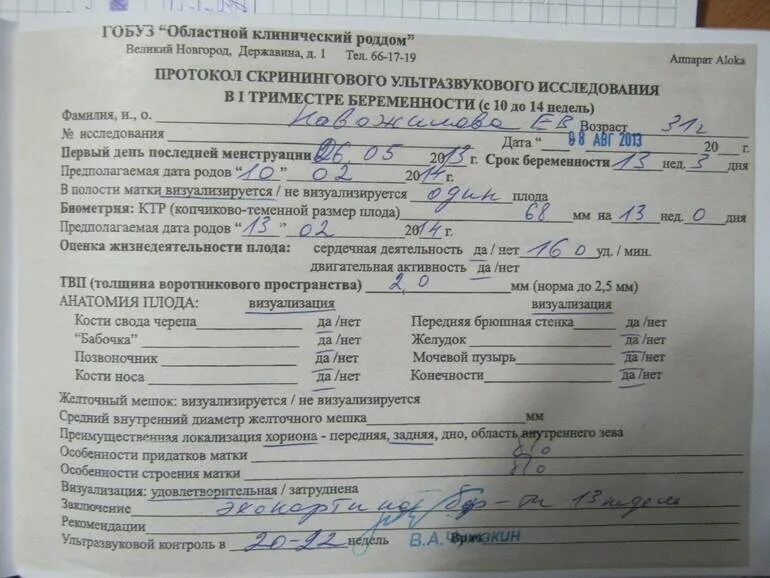 ГОБУЗ "Областной клинический роддом"
Великий Новгород, Державина, д. 1 Тел. 66-17-19
Аппарат Aloka
ПРОТОКОЛ СКРИНИНГОВОГО УЛЬТРАЗВУКОВОГО ИССЛЕДОВАНИЯ
В I ТРИМЕСТРЕ БЕРЕМЕННОСТИ (с 10 до 14 недель)
Фамилия, и., о. Новожилова ЕВ Возраст 31г
№ исследования Дата " 08 АВГ 2013 20 г.
Первый день последней менструации 06.05 2013 г. Срок беременности 13 нед. 3 дня
Предполагаемая дата родов "10" 02 2014 г.
В полости матки визуализируется / не визуализируется один плода
Биометрия: КТР (копчиково-теменной размер плода) 68 мм на 13 нед. 0 дня
Предполагаемая дата родов "13" 02 2014 г.
Оценка жизнедеятельности плода: сердечная деятельность да / нет 160 уд. / мин.
двигательная активность да /нет
ТВП (толщина воротникового пространства) 2,0 мм (норма до 2,5 мм)
АНАТОМИЯ ПЛОДА: визуализация визуализация
Кости свода черепа да /нет Передняя брюшная стенка да /нет
"Бабочка" да /нет Желудок да /нет
Позвоночник да /нет Мочевой пузырь да /нет
Кости носа да /нет Конечности да /нет
Желточный мешок: визуализируется / не визуализируется
Средний внутренний диаметр желточного мешка мм
Преимущественная локализация хориона - передняя, задняя, дно, область внутреннего зева
Особенности придатков матки б/о
Особенности строения матки б/о
Визуализация: удовлетворительная / затруднена
Заключение эхокартина бер-ти 13 недель
Рекомендации
Ультразвуковой контроль в 20-22 недель Врач